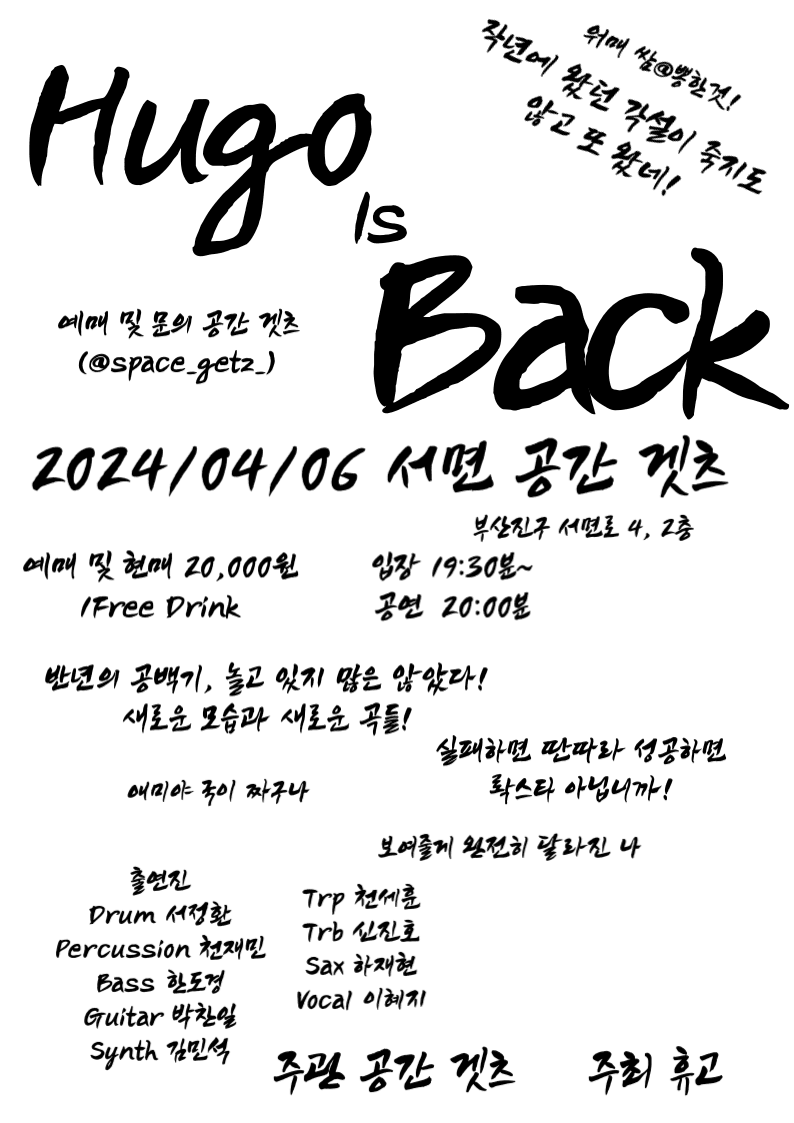 위매 쌈@뽕한것!
작년에 왔던 각설이 죽지도
않고 또 왔네!
Hugo
Is
Back
예매 및 문의 공간 겟츠
(@space_getz_)
2024/04/06 서면 공간 겟츠
부산진구 서면로 4, 2층
예매 및 현매 20,000원
1Free Drink
입장 19:30분~
공연 20:00분
반년의 공백기, 놀고 있지 많은 않았다!
새로운 모습과 새로운 곡들!
실패하면 딴따라 성공하면
롹스타 아닙니까!
애미야 국이 짜구나
보여줄게 완전히 달라진 나
출연진
Drum 서정환
Percussion 천재민
Bass 한도경
Guitar 박찬일
Synth 김민석
Trp 천세훈
Trb 심진호
Sax 하재현
Vocal 이혜지
주관 공간 겟츠
주최 휴고